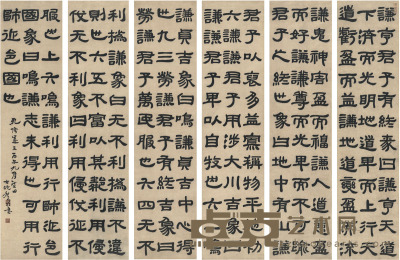 謙亨君子有終彖曰謙亨天道
下濟而光明地道卑而上行天
道虧盈而益謙地道變盈而流
謙鬼神害盈而福謙人道惡盈
而好謙謙尊而光卑而不可踰
君子之終也象曰地中有山謙
君子以裒多益寡稱物平施初
六謙謙君子用涉大川吉象曰
謙謙君子卑以自牧也六二鳴
謙貞吉象曰鳴謙貞吉中心得
也九三勞謙君子有終吉象曰
勞謙君子萬民服也六四无不
利撝謙象曰无不利撝謙不違
則也六五不富以其鄰利用侵
伐无不利象曰利用侵伐征不
服也上六鳴謙利用行師征邑
國象曰鳴謙志未得也可用行
師征邑國也